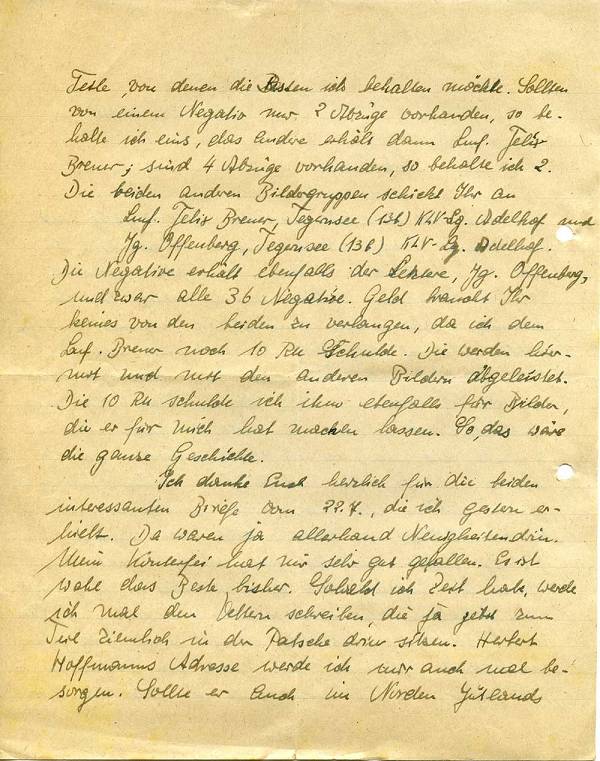 Teile, von denen die Besten ich behalten möchte. Sollten
von einem Negativ nur 2 Abzüge vorhanden, so be-
halte ich eins, das andere erhält dann Lmf. Felix
Breuer; sind 4 Abzüge vorhanden, so behalte ich 2.
Die beiden anderen Bildergruppen schickt Ihr an
Lmf. Felix Breuer, Tegernsee (13b) KLV-Lg. Adelhof und
Jg. Offenberg, Tegernsee (13b) KLV-Lg. Adelhof.
Die Negative erhält ebenfalls der Letztere, Jg. Offenberg,
und zwar alle 36 Negative. Geld braucht Ihr
keines von den beiden zu verlangen, da ich dem
Lmf. Breuer noch 10 RM Schulde. Die werden hier-
mit und mit den anderen Bildern abgeleistet.
Die 10 RM schulde ich ihm ebenfalls für Bilder,
die er für mich hat machen lassen. So, das wäre
die ganze Geschichte.
Ich danke Euch herzlich für die beiden
interessanten Briefe vom 22.7., die ich gestern er-
hielt. Da waren ja allerhand Neuigkeiten drin.
Mein Konterfei hat mir sehr gut gefallen. Es ist
wohl das Beste bisher. Sobald ich Zeit hab, werde
ich mal den Vettern schreiben, die ja jetzt zum
Teil ziemlich in der Patsche drin sitzen. Herbert
Hoffmanns Adresse werde ich mir auch mal be-
sorgen. Sollte er auch im Norden Jütlands